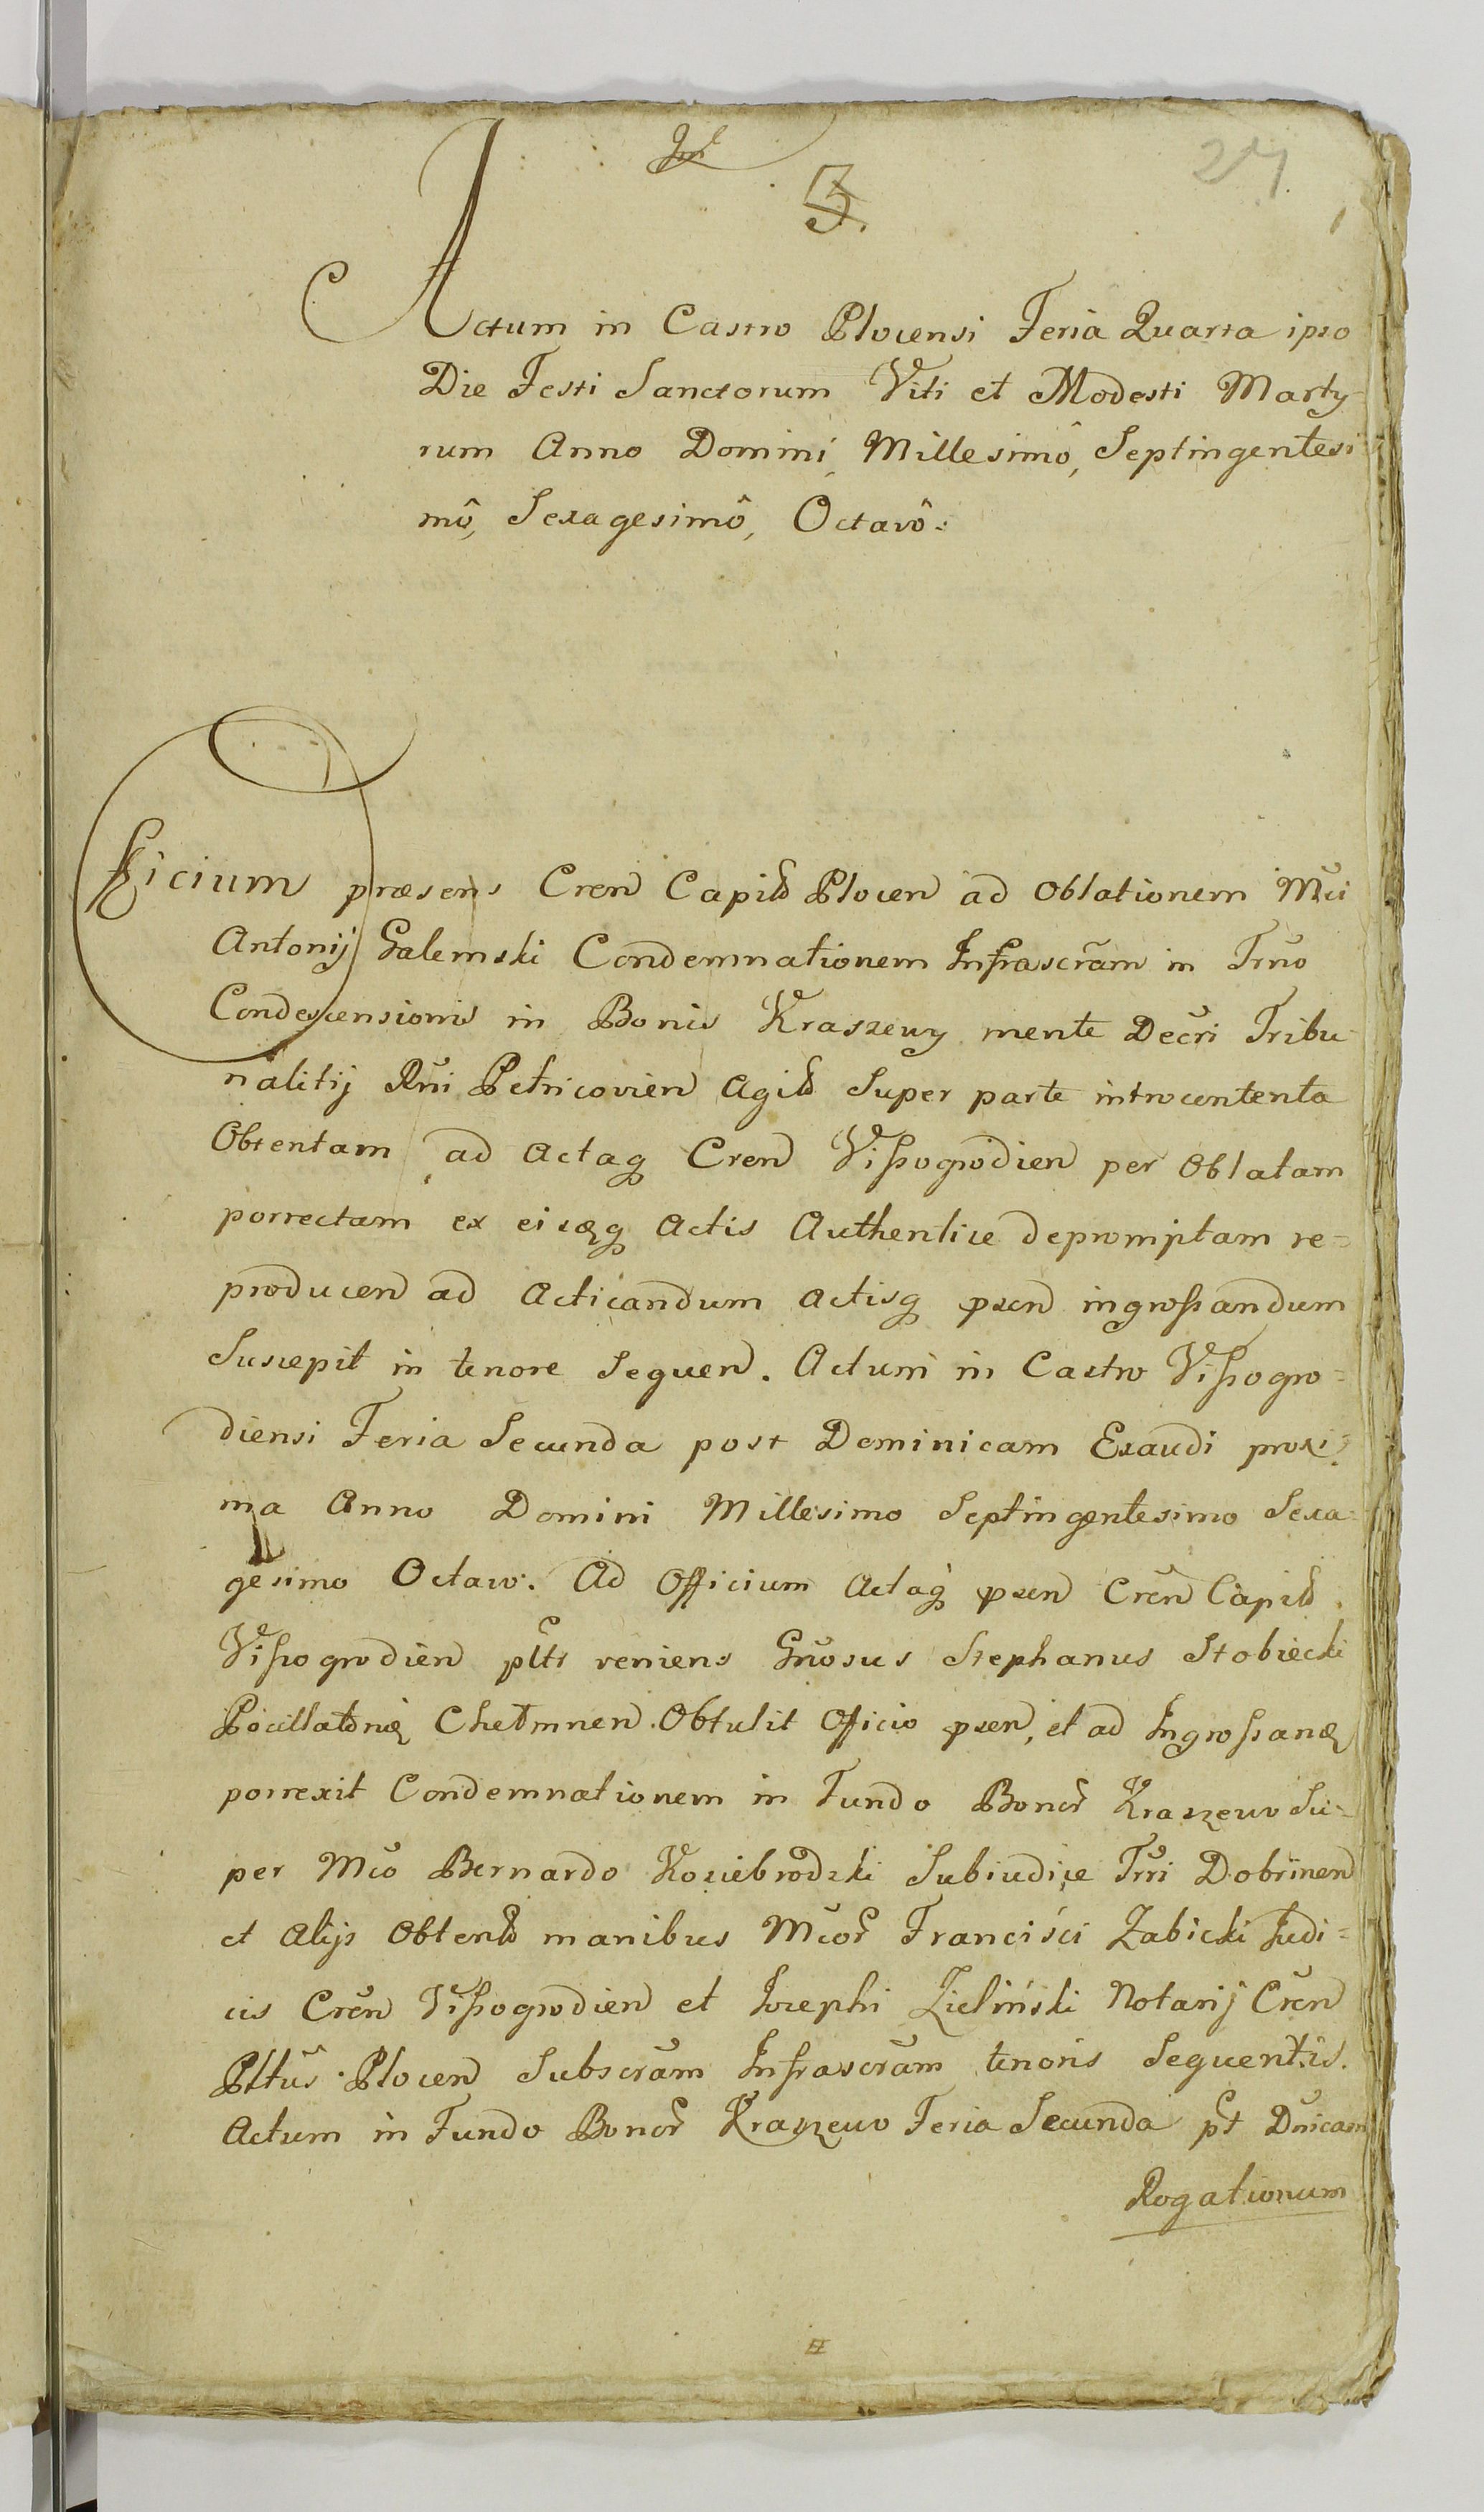 27
5.
Actum in Castro Plocensi Feria Quarta ipso
Die Festi Sanctorum Viti et Modesti Marty-
rum Anno Domini Millesimô, Septingentesi
mô, Sexagesimô, Octavô.
Officium præsens Cren Capitł Plocen ad Oblationem Mci
Antonij Galemski Condemnationem Infrascram in Trno
Condescensionis in Bonis Kraszewy mente Decri Tribu-
nalitij Rni Petricovien Super parte introcontenta
Obtentam ad Actaq Cren Vissogrodien per Oblatam
porrectam ex eisdq Actis Authentice depromptam re=
producen ad Acticandum Actisq psen ingrossandum
Suscepit in tenore Sequen. Actum in Castro Vissogro=
diensi Feria Secunda post Dominicam Exaudi proxi=
ma Anno Domini Millesimo Septingentesimo Sexa=
gesimo Octavo. Ad Officium Actaq psen Cren Capitł
Vissogrodien pltr veniens Gnosus Stephanus Stobiecki
Chełmnen. Obtulit Officio psen, et ad
porrexit Condemnationem in Fundo Bonor Kraszewo Su=
per Mco Bernardo Koziebrodzki Subiudice Trri Dobrinen
et Alijs Obtentł manibus Mcor Francisci Zabicki Judi=
cis Cren Vissogrodien et Josephi Zieliński Notarij Cren
Pltus Plocen Subscram Infrascram tenoris Sequentis.
Actum in Fundo Bonor Kraszewo Feria Secunda pt Dnicam
Rogationum